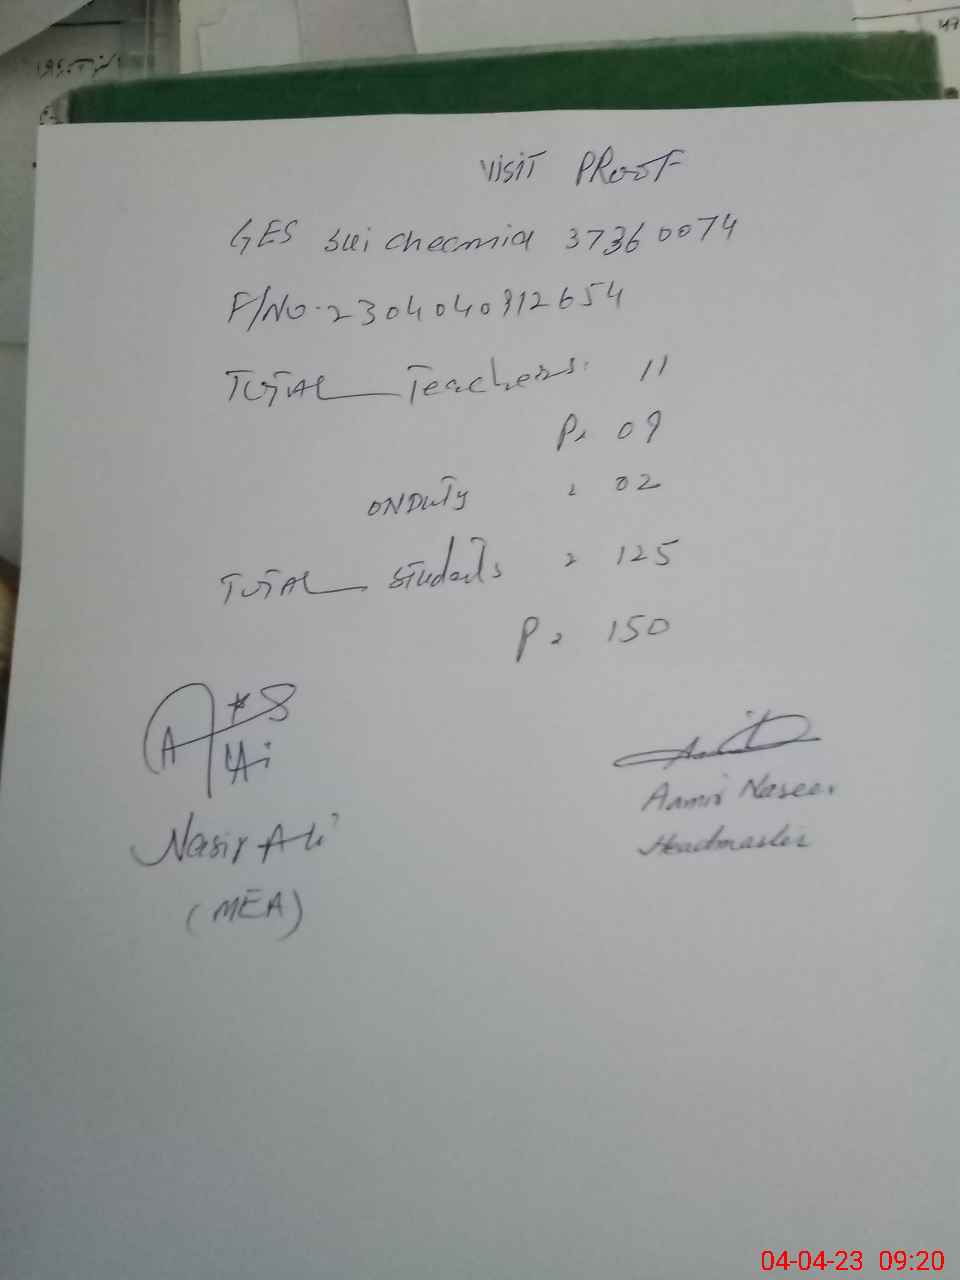 VISIT PROOF
GES Sui cheemia 37360074
F/NO-2304040912654
TOTAL Teachers: 11
P. 09
ONDUTY : 02
TOTAL Students : 125
P : 150
Nasir Ali
(MEA)
Aamir Naseer
Headmaster
04-04-23 09:20